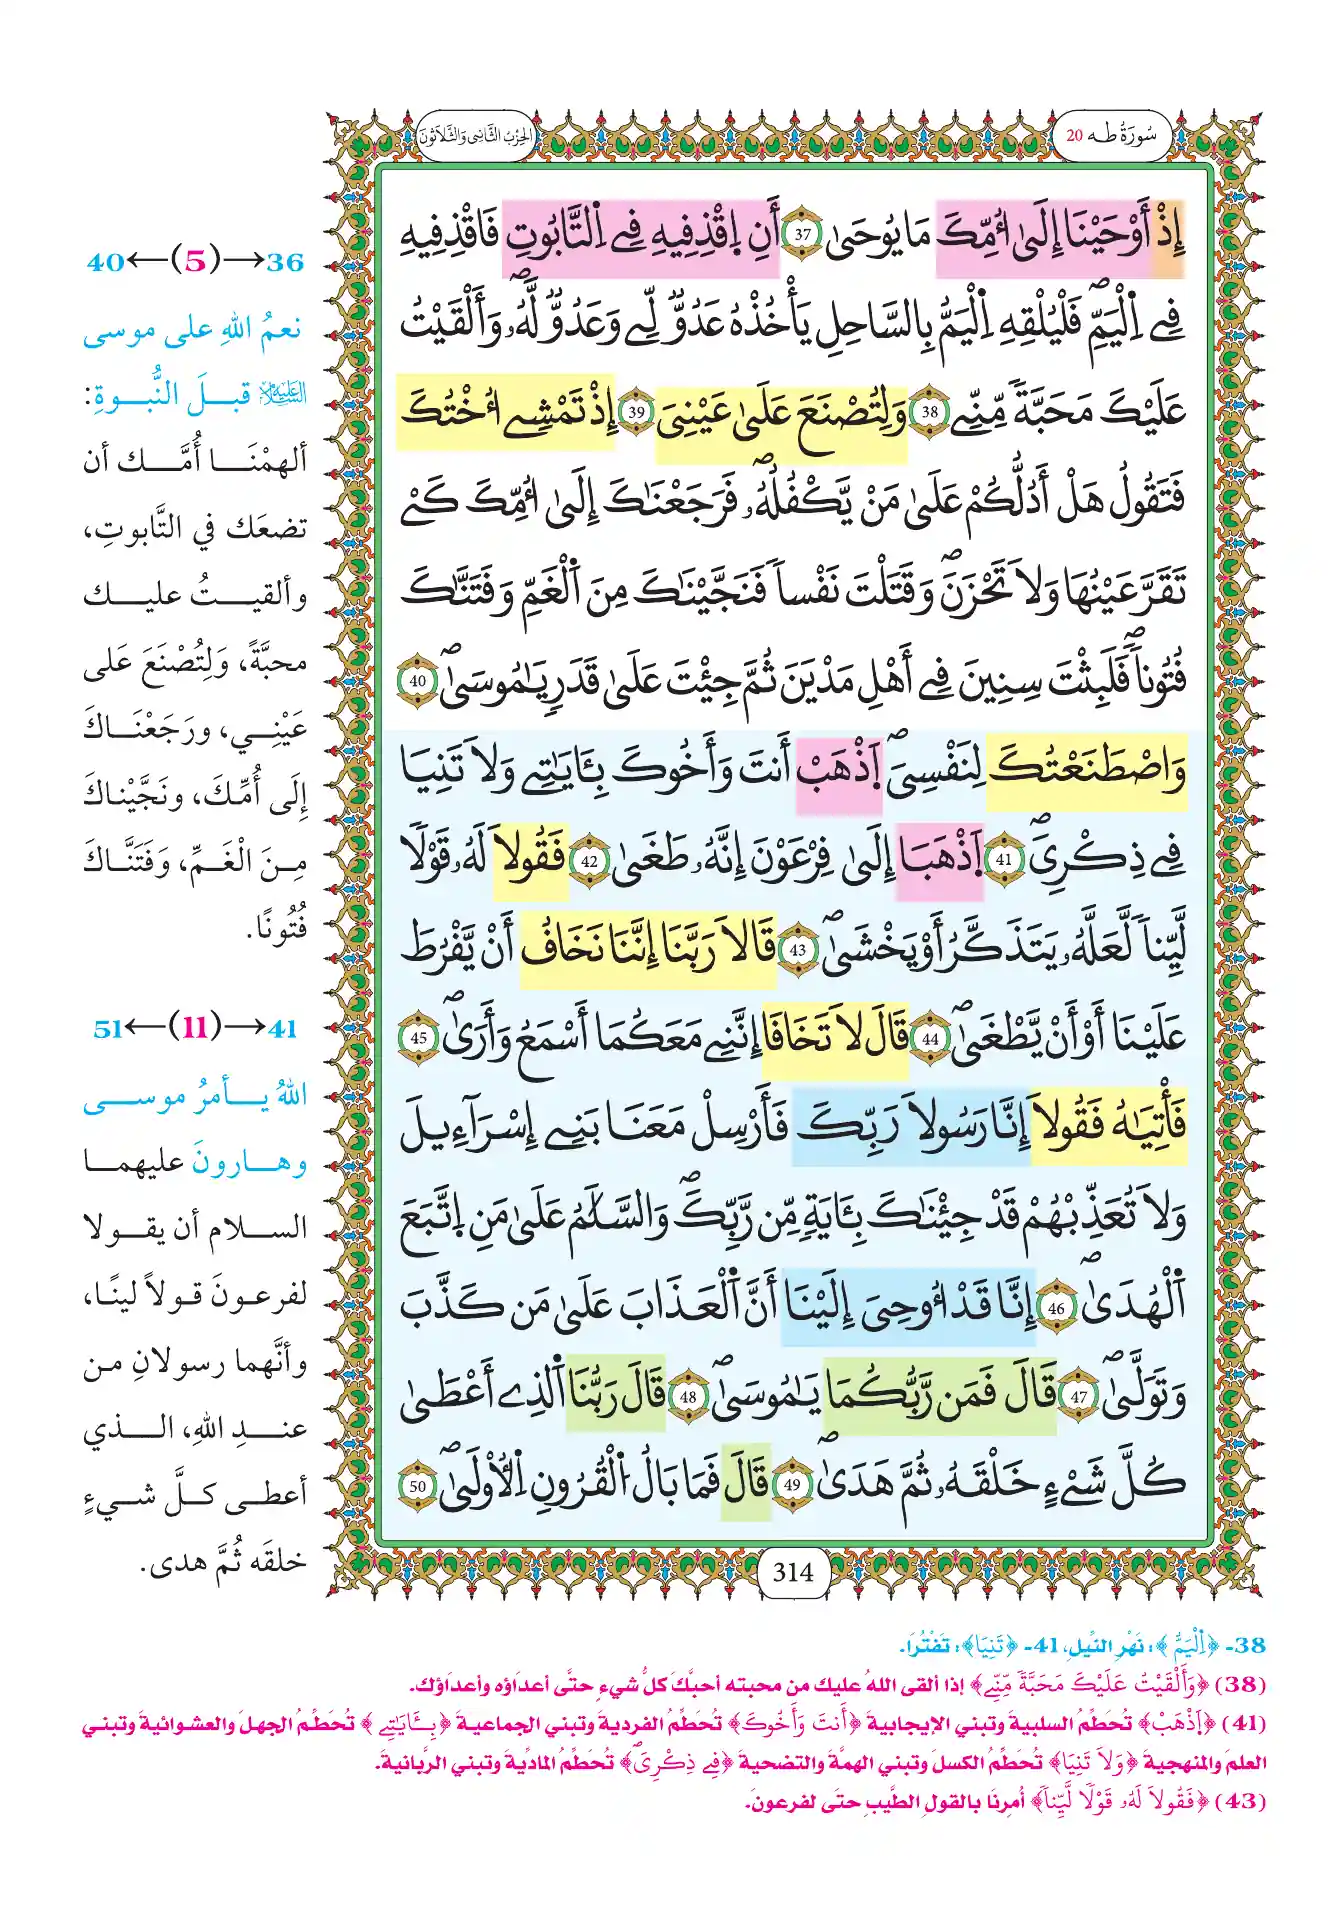 سُورَةُ طـه 20
الحِزْبُ الثَّانِي وَالثَّلَاثُونَ
إِذْ أَوْحَيْنَا إِلَىٰ أُمِّكَ مَا يُوحَىٰ 37 أَنِ اِ۪قْذِفِيهِ فِے اِ۬لتَّابُوتِ فَاقْذِفِيهِ
فِے اِ۬لْيَمِّۖ فَلْيُلْقِهِ اِ۬لْيَمُّ بِالسَّاحِلِ يَأْخُذْهُ عَدُوّٞ لِّے وَعَدُوّٞ لَّهُۥۖ وَأَلْقَيْتُ
عَلَيْكَ مَحَبَّةٗ مِّنِّے 38 وَلِتُصْنَعَ عَلَىٰ عَيْنِيَ 39 إِذْ تَمْشِے أُخْتُكَ
فَتَقُولُ هَلْ أَدُلُّكُمْ عَلَىٰ مَنْ يَّكْفُلُهُۥۖ فَرَجَعْنَٰكَ إِلَىٰ أُمِّكَ كَےْ
تَقَرَّ عَيْنُهَا وَلَا تَحْزَنَۖ وَقَتَلْتَ نَفْساٗ فَنَجَّيْنَٰكَ مِنَ اَ۬لْغَمِّ وَفَتَنَّٰكَ
فُتُوناٗۖ فَلَبِثْتَ سِنِينَ فِے أَهْلِ مَدْيَنَ ثُمَّ جِئْتَ عَلَىٰ قَدَرٖ يَٰمُوسَىٰۖ 40
وَاصْطَنَعْتُكَ لِنَفْسِيَۖ اَ۪ذْهَبْ أَنتَ وَأَخُوكَ بِـَٔايَٰتِے وَلَا تَنِيَا
فِے ذِكْرِيَۖ 41 اَ۪ذْهَبَا إِلَىٰ فِرْعَوْنَ إِنَّهُۥ طَغَىٰ 42 فَقُولَا لَهُۥ قَوْلٗا
لَّيِّناٗ لَّعَلَّهُۥ يَتَذَكَّرُ أَوْ يَخْشَىٰۖ 43 قَالَا رَبَّنَا إِنَّنَا نَخَافُ أَنْ يَّفْرُطَ
عَلَيْنَا أَوْ أَنْ يَّطْغَىٰۖ 44 قَالَ لَا تَخَافَا إِنَّنِے مَعَكُمَا أَسْمَعُ وَأَرَىٰۖ 45
فَأْتِيَٰهُ فَقُولَا إِنَّا رَسُولَا رَبِّكَ فَأَرْسِلْ مَعَنَا بَنِے إِسْرَآءِيلَ
وَلَا تُعَذِّبْهُمْ قَدْ جِئْنَٰكَ بِـَٔايَةٖ مِّن رَّبِّكَۖ وَالسَّلَٰمُ عَلَىٰ مَنِ اِ۪تَّبَعَ
اَ۬لْهُدَىٰۖ 46 إِنَّا قَدْ أُوحِيَ إِلَيْنَا أَنَّ اَ۬لْعَذَابَ عَلَىٰ مَن كَذَّبَ
وَتَوَلَّىٰۖ 47 قَالَ فَمَن رَّبُّكُمَا يَٰمُوسَىٰۖ 48 قَالَ رَبُّنَا اَ۬لذِے أَعْطَىٰ
كُلَّ شَےْءٍ خَلْقَهُۥ ثُمَّ هَدَىٰۖ 49 قَالَ فَمَا بَالُ اُ۬لْقُرُونِ اِ۬لْأُولَىٰۖ 50
314
36→(5)←40
نعمُ اللهِ على موسى
عليه السلام قبلَ النُّبوةِ:
ألهمْنَا أُمَّك أن
تضعَك في التَّابوتِ،
وألقيتُ عليك
محبَّةً، وَلِتُصْنَعَ عَلى
عَيْنِي، ورَجَعْنَاكَ
إِلَى أُمِّكَ، ونَجَّيْناكَ
مِنَ الْغَمِّ، وَفَتَنَّاكَ
فُتُونًا.
41→(11)←51
اللهُ يأمرُ موسى
وهارونَ عليهما
السلام أن يقولا
لفرعونَ قولاً لينًا،
وأنَّهما رسولانِ من
عندِ اللهِ، الذي
أعطى كلَّ شيءٍ
خلقَه ثُمَّ هدى.
38- ﴿اِ۬لْيَمِّ﴾: نَهْرِ النِّيلِ، 41- ﴿تَنِيَا﴾: تَفْتُرَا.
(38) ﴿وَأَلْقَيْتُ عَلَيْكَ مَحَبَّةٗ مِّنِّے﴾ إذا ألقى اللهُ عليك من محبته أحبَّكَ كلُّ شيءٍ حتَّى أعداؤه وأعداؤك.
(41) ﴿اَ۪ذْهَبْ﴾ تُحَطِّمُ السلبيةَ وتبني الإيجابيةَ ﴿أَنتَ وَأَخُوكَ﴾ تُحَطِّمُ الفرديةَ وتبني الجماعيةَ ﴿بِـَٔايَٰتِے﴾ تُحَطِّمُ الجهلَ والعشوائيةَ وتبني
العلمَ والمنهجيةَ ﴿وَلَا تَنِيَا﴾ تُحَطِّمُ الكسلَ وتبني الهمَّةَ والتضحيةَ ﴿فِے ذِكْرِيَۖ﴾ تُحَطِّمُ الماديَّةَ وتبني الربَّانيةَ.
(43) ﴿فَقُولَا لَهُۥ قَوْلٗا لَّيِّناٗ﴾ أُمِرنَا بالقولِ الطَّيبِ حتَّى لفرعونَ.